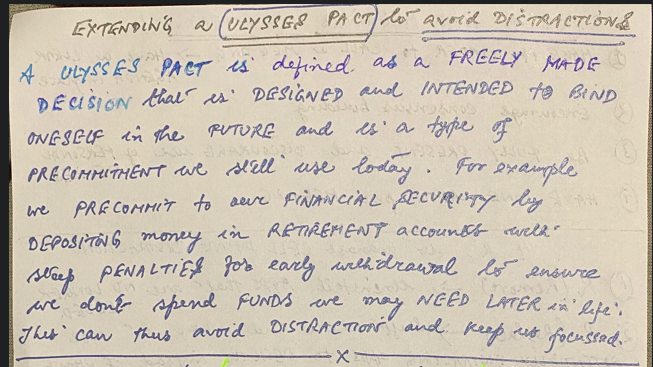 EXTENDING a ULYSSES PACT to avoid DISTRACTIONS
A ULYSSES PACT is defined as a FREELY MADE
DECISION that is DESIGNED and INTENDED to BIND
ONESELF in the FUTURE and is a type of
PRECOMMITMENT we still use today. For example
we PRECOMMIT to our FINANCIAL SECURITY by
DEPOSITING money in RETIREMENT accounts with
steep PENALTIES for early withdrawal to ensure
we don't spend FUNDS we may NEED LATER in life.
This can thus avoid DISTRACTION and keep us focussed.
x